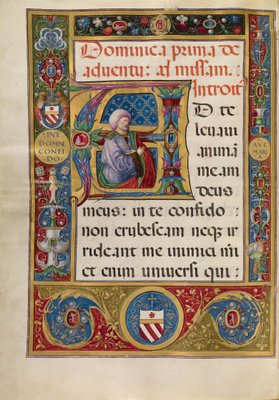 Dominica prima de
aduentu: ad missam.
Introit
A
D te
leuaui
animã
meam
deus
meus: in te confido
non erubescam neq; ir
rideant me inimici mei
et enim uniuersi qui:
IN E
DOMN
CONFI
DO
AVE
MARI